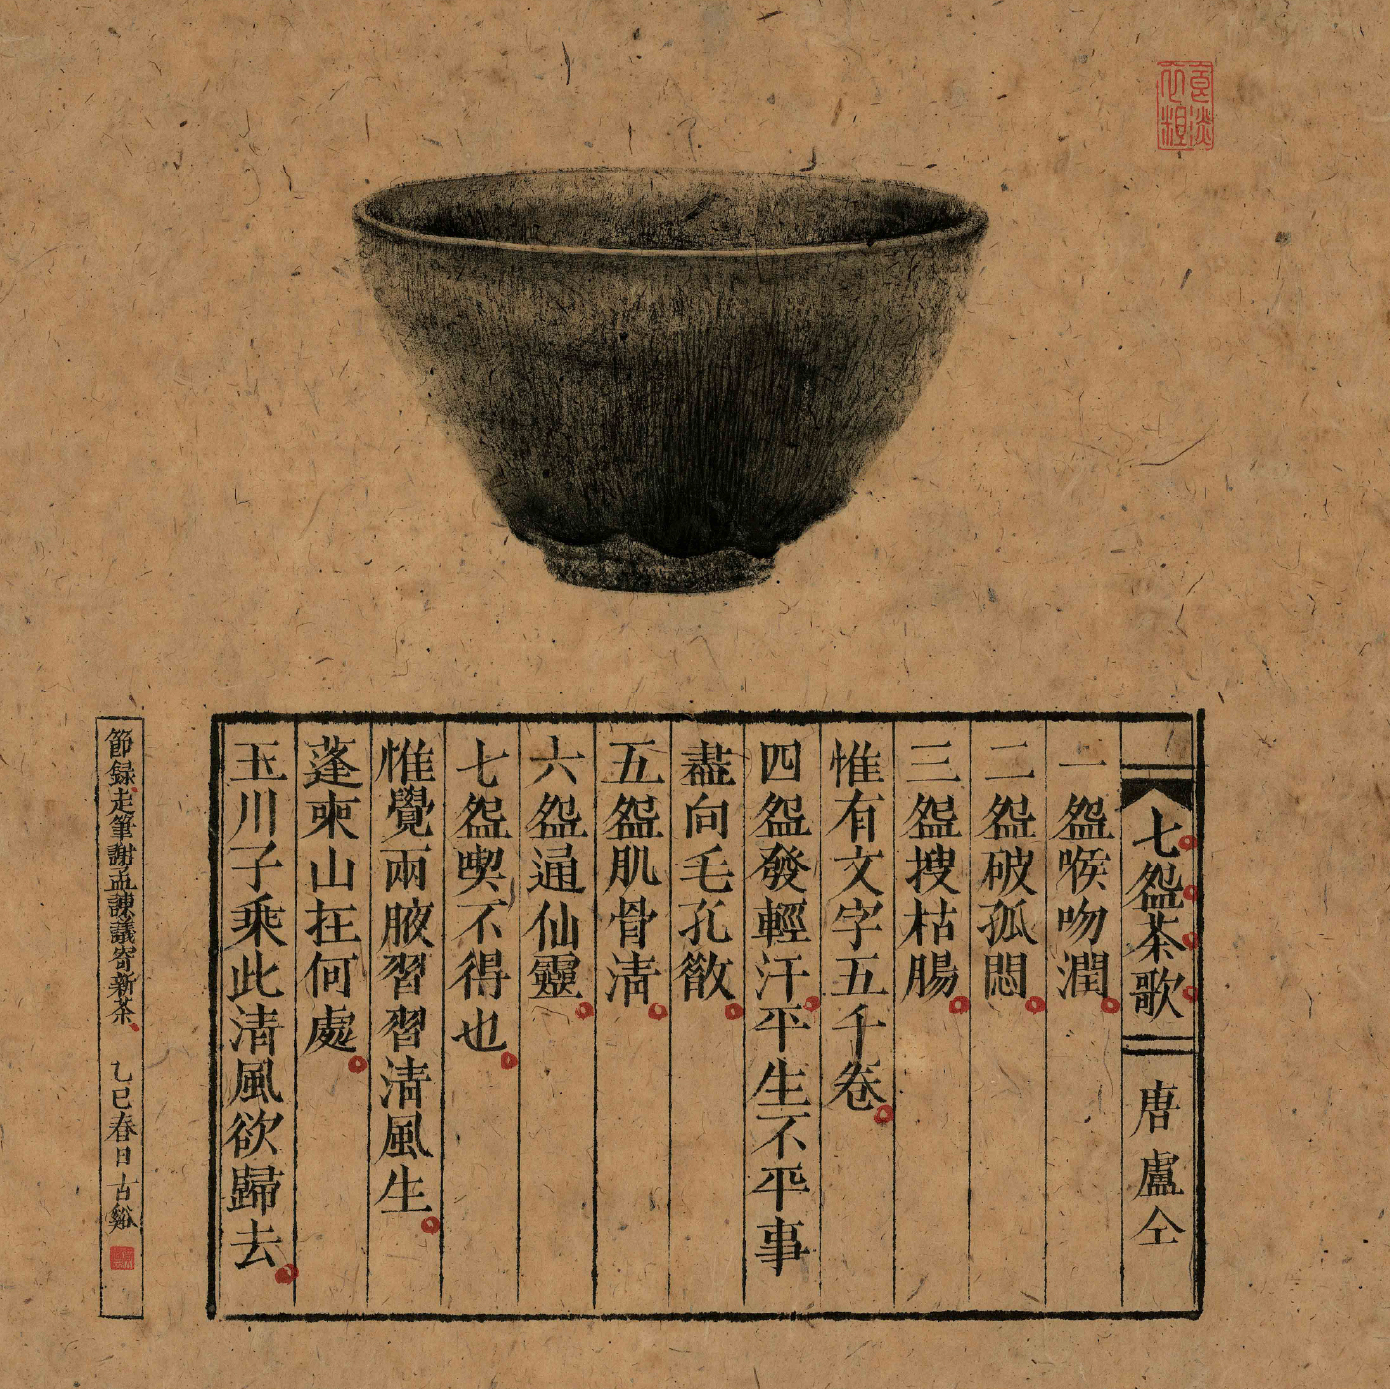 七盌茶歌 唐 盧仝
一盌喉吻潤
二盌破孤悶
三盌搜枯腸
惟有文字五千卷
四盌發輕汗平生不平事
盡向毛孔散
五盌肌骨清
六盌通仙靈
七盌喫不得也
惟覺兩腋習習清風生
蓬萊山在何處
玉川子乘此清風欲歸去
節録走筆謝孟諫議寄新茶 乙巳春日古谿